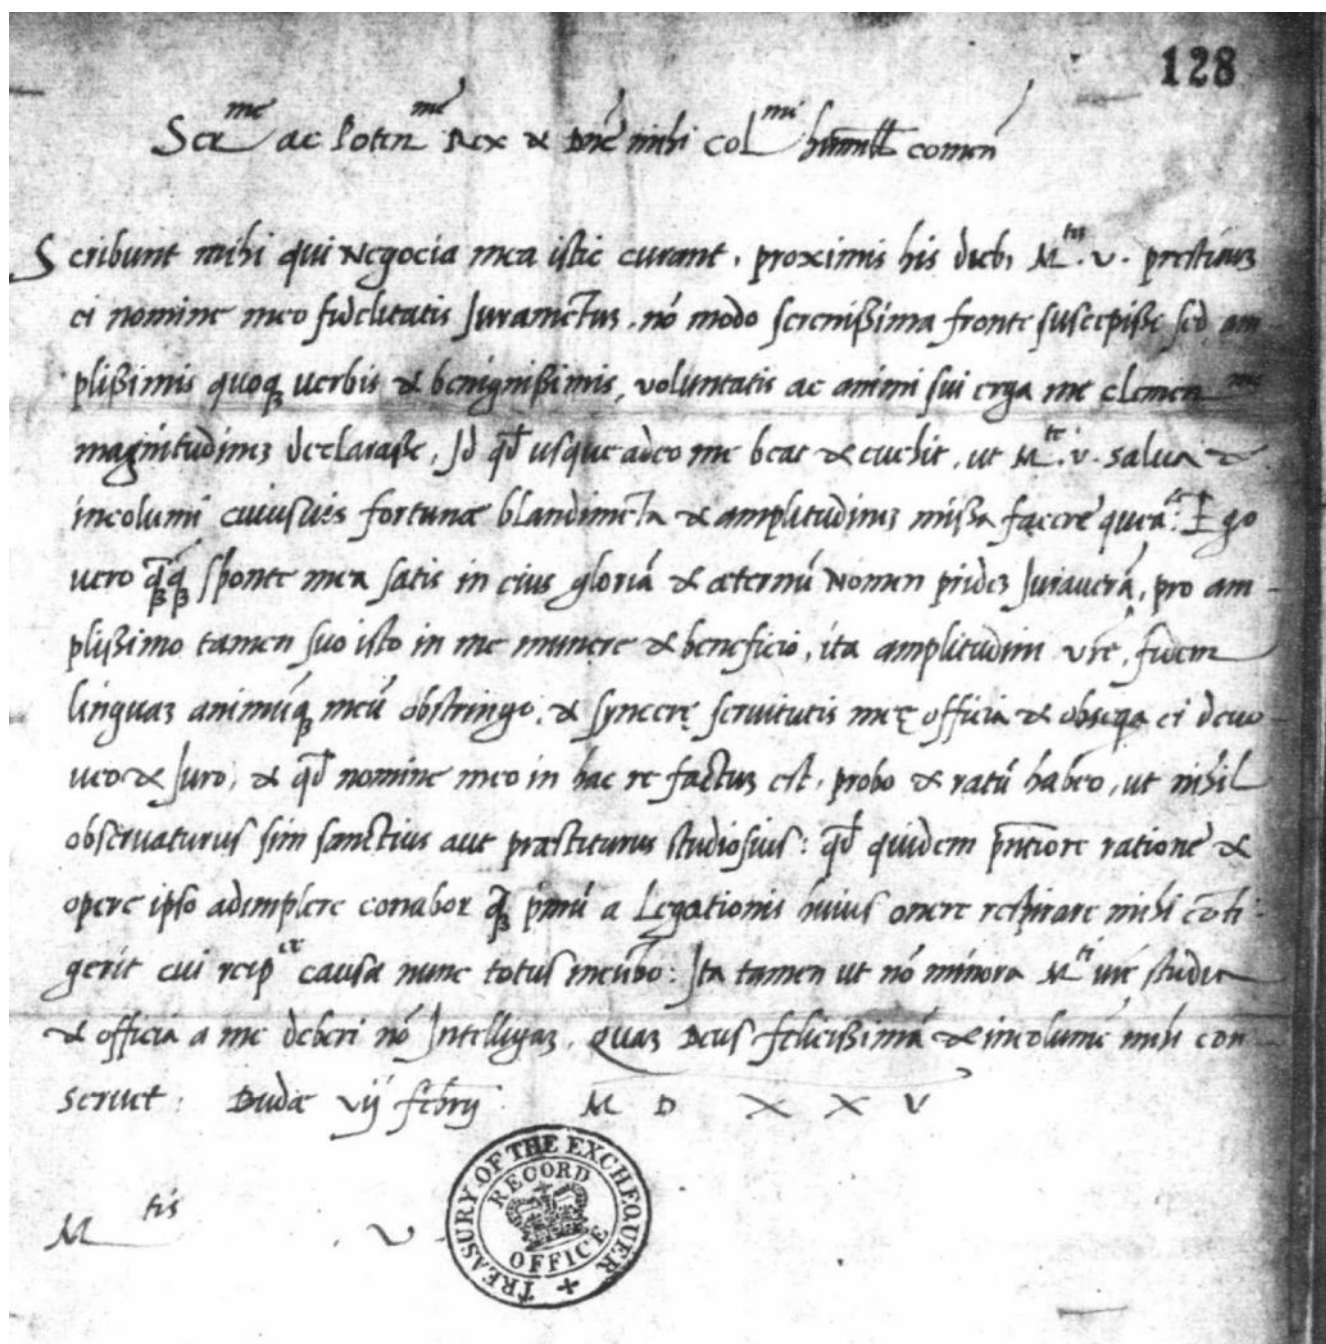 128
Ser^me ac Poten^me Rex & Dñe mihi Col^mi humill^e comen
Scribunt mihi qui Negocia mea istic curant, proximis his dieb; M^tem. V. prestitum
ei nomine meo fidelitatis Juramētum, nō modo serenissima fronte suscepisse, sed am
plissimis quoq; uerbis & benignissimis, voluntatis ac animi sui erga me clemen^me
magnitudinem declarasse, Id qd usque adeo me beat & euehit, ut M^te. V. salua &
incolumi cuiusuis fortunæ blandimēta & amplitudinem missa facere queā: Ego
uero qāq; sponte mea satis in eius gloriā & æternū Nomen pridem Juraverā, pro am-
plissimo tamen suo isto in me munere & beneficio, ita amplitudini vrē, fidem
linguam animūq; meū obstringo, & syncerę seruitutis meę officia & obseqa ei deuo
ueo & Juro, & qd nomine meo in hac re factum est, probo & ratū habeo, ut nihil
obseruaturus sim sanctius aut præstiturus studiosius: qd quidem pñtiore ratione &
opere ipso adimplere conabor q; primū a Legationis huius onere respirare mihi cōti-
gerit cui reip^ce causa nunc totus incūbo: Ita tamen ut nō minora M^ti vrē studia
& officia a me deberi nō Intelligam, Quam Deus felicissimā & incolumē mihi con-
seruet: Budæ vij febrij M D X X V
M^tis . V
TREASURY OF THE EXCHEQUER
RECORD
OFFICE